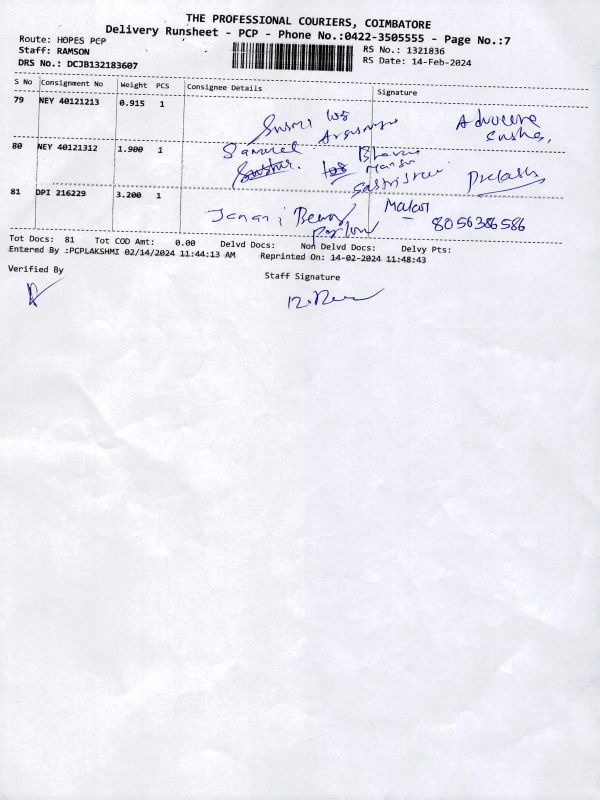 THE PROFESSIONAL COURIERS, COIMBATORE
Delivery Runsheet - PCP - Phone No.:0422-3505555 - Page No.:7
Route: HOPES PCP
RS No.: 1321836
Staff: RAMSON
RS Date: 14-Feb-2024
DRS No.: DCJB132183607
S No Consignment No Weight PCS Consignee Details Signature
79 NEY 40121213 0.915 1
80 NEY 40121312 1.900 1
Samuel
Prakash
81 DPI 216229 3.200 1
Janani
8056386586
Tot Docs: 81 Tot COD Amt: 0.00 Delvd Docs: Non Delvd Docs: Delvy Pts:
Entered By :PCPLAKSHMI 02/14/2024 11:44:13 AM Reprinted On: 14-02-2024 11:48:43
Verified By
Staff Signature